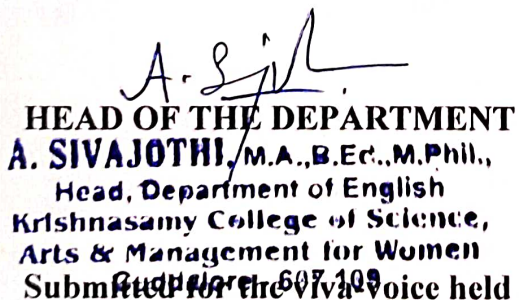 A. Sji
HEAD OF THE DEPARTMENT
A. SIVAJOTHI, M.A.,B.Ed.,M.Phil.,
Head, Department of English
Krishnasamy College of Science,
Arts & Management for Women
Cuddalore - 607 109
Submitted for the viva-voice held